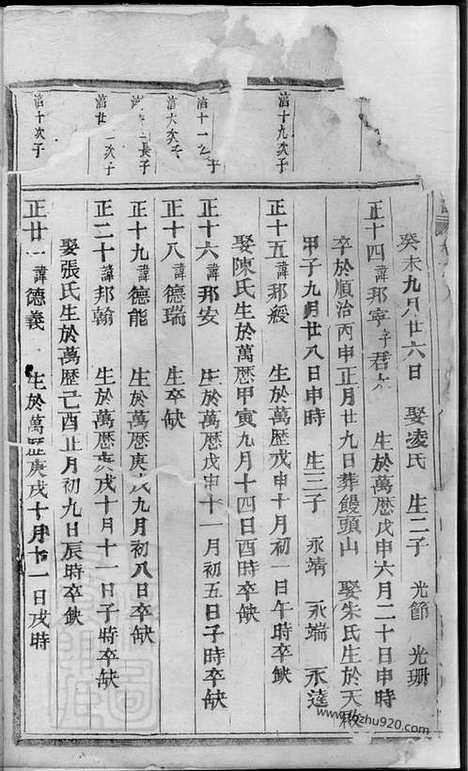 癸未九月廿六日 娶凌氏 生二子 光節 光珊
正十四諱邦寧 君 生於萬歷戊申六月二十日申時
卒於順治丙申正月廿九日葬饅頭山 娶朱氏生於天啟
甲子九月廿八日申時 生三子 永靖 永端 永達
滔十九次子
正十五諱邦綏 生於萬歷戊申十月初一日午時卒缺
娶陳氏生於萬歷甲寅九月十四日酉時卒缺
滔十一 子
正十六諱邦安 生於萬歷戊申十一月初五日子時卒缺
滔六次子
正十八諱德瑞 生卒缺
長子
正十九諱德能 生於萬歷庚戌九月初八日卒缺
滔廿 次子
正二十諱邦翰 生於萬歷庚戌十月十一日子時卒缺
娶張氏生於萬歷己酉正月初九日辰時卒缺
滔十次子
正廿一諱德義 生於萬歷庚戌十月十一日戌時
zhu920.com